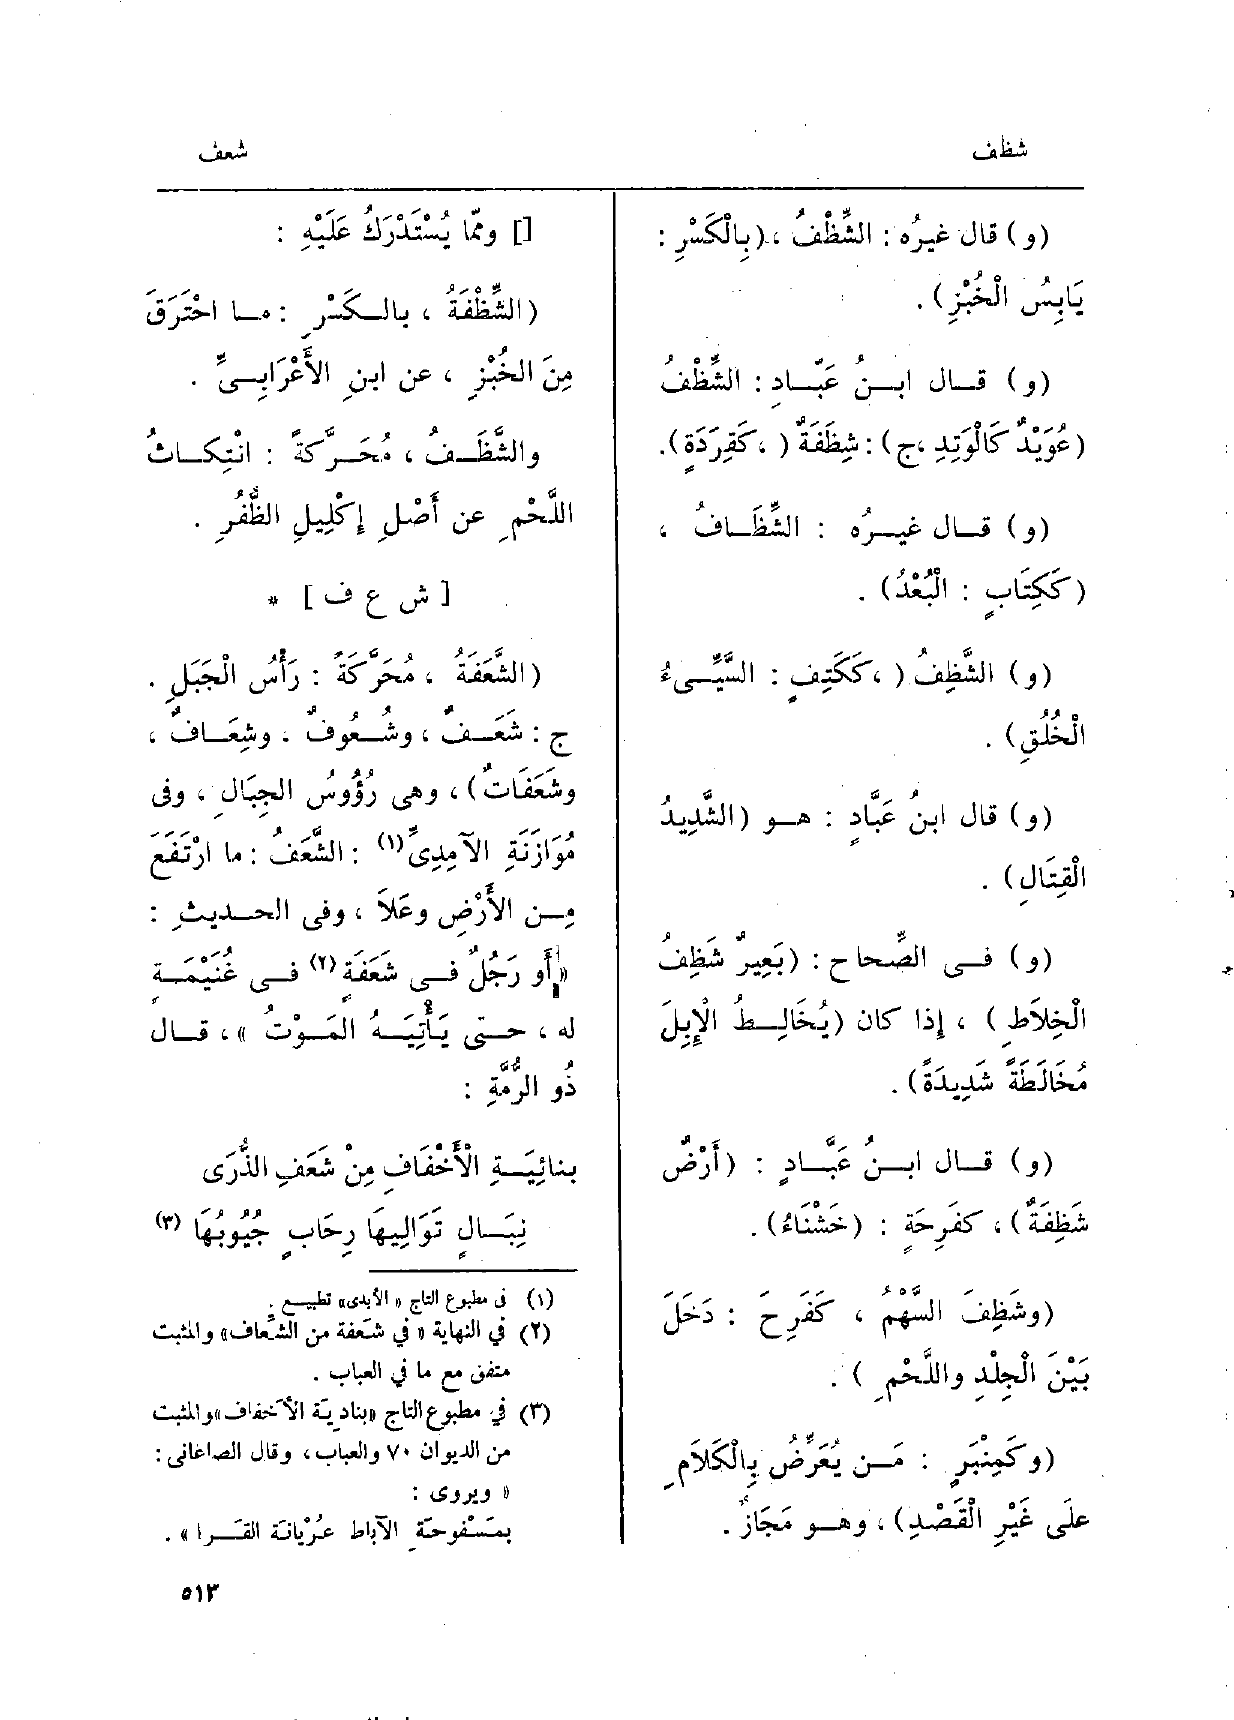 شظف
شعف
(و) قال غيرُه : الشِّظْفُ ، (بِالْكَسْرِ :
يَابِسُ الْخُبْزِ) .
(و) قال ابنُ عَبّادٍ : الشِّظْفُ
(عُوَيْدٌ كَالْوَتِدِ ،ج) : شِظَفَةٌ ( ، كَقِرَدَةٍ).
(و) قال غيرُه : الشِّظَافُ ،
(كَكِتَابٍ : الْبُعْدُ) .
(و) الشَّظِفُ ( ، كَكَتِفٍ : السَّيِّىءُ
الْخُلُقِ) .
(و) قال ابنُ عَبَّادٍ : هو (الشَّدِيدُ
الْقِتَالِ) .
(و) فى الصِّحاح : (بَعِيرٌ شَظِفُ
الْخِلاَطِ ) ، إذا كان (يُخَالِطُ الْإِبِلَ
مُخَالَطَةً شَدِيدَةً) .
(و) قال ابنُ عَبَّادٍ : (أَرْضٌ
شَظِفَةٌ) ، كفَرِحَةٍ : (خَشْنَاءُ) .
(وشَظِفَ السَّهْمُ ، كَفَرِحَ : دَخَلَ
بَيْنَ الْجِلْدِ واللَّحْمِ ) .
(وكَمِنْبَرٍ : مَن يُعَرِّضُ بِالْكَلاَمِ
علَى غَيْرِ الْقَصْدِ) ، وهو مَجَازٌ .
[] وممّا يُسْتَدْرَكُ عَلَيْهِ :
(الشِّظْفَةُ ، بالكَسْرِ : ما احْتَرَقَ
مِنَ الخُبْزِ ، عن ابنِ الأَعْرَابِىِّ .
والشَّظَفُ ، مُحَرَّكَةً : انْتِكاثُ
اللَّحْمِ عن أَصْلِ إِكْلِيلِ الظُّفُرِ .
[ ش ع ف ] *
(الشَّعَفَةُ ، مُحَرَّكَةً : رَأْسُ الْجَبَلِ .
ج : شَعَفٌ ، وشُعُوفٌ . وشِعَافٌ ،
وشَعَفَاتٌ) ، وهى رُؤُوسُ الجِبَالِ ، وفى
مُوَازَنَةِ الآمِدِىِّ (١) : الشَّعَفُ : ما ارْتَفَعَ
مِن الأَرْضِ وعَلاَ ، وفى الحديثِ :
«أَو رَجُلٌ فى شَعَفَةٍ (٢) فى غُنَيْمَةٍ
له ، حتى يَأْتِيَهُ المَوْتُ » ، قال
ذُو الرُّمَّةِ :
بنائِيَةِ الْأَخْفَافِ مِنْ شَعَفِ الذُّرَى
نِبَالٍ تَوَالِيهَا رِحَابٍ جُيُوبُهَا (٣)
(١) فى مطبوع التاج « الأبدى» تطبيع .
(٢) في النهاية « في شَعَفة من الشِّعاف» والمثبت
متفق مع ما في العباب .
(٣) في مطبوع التاج «بنادِيَة الأخفاف» والمثبت
من الديوان ٧٠ والعباب ، وقال الصاغانى :
« ويروى :
بمَسْفوحَةِ الآباط عُرْيانَة القَرا » .
٥١٣